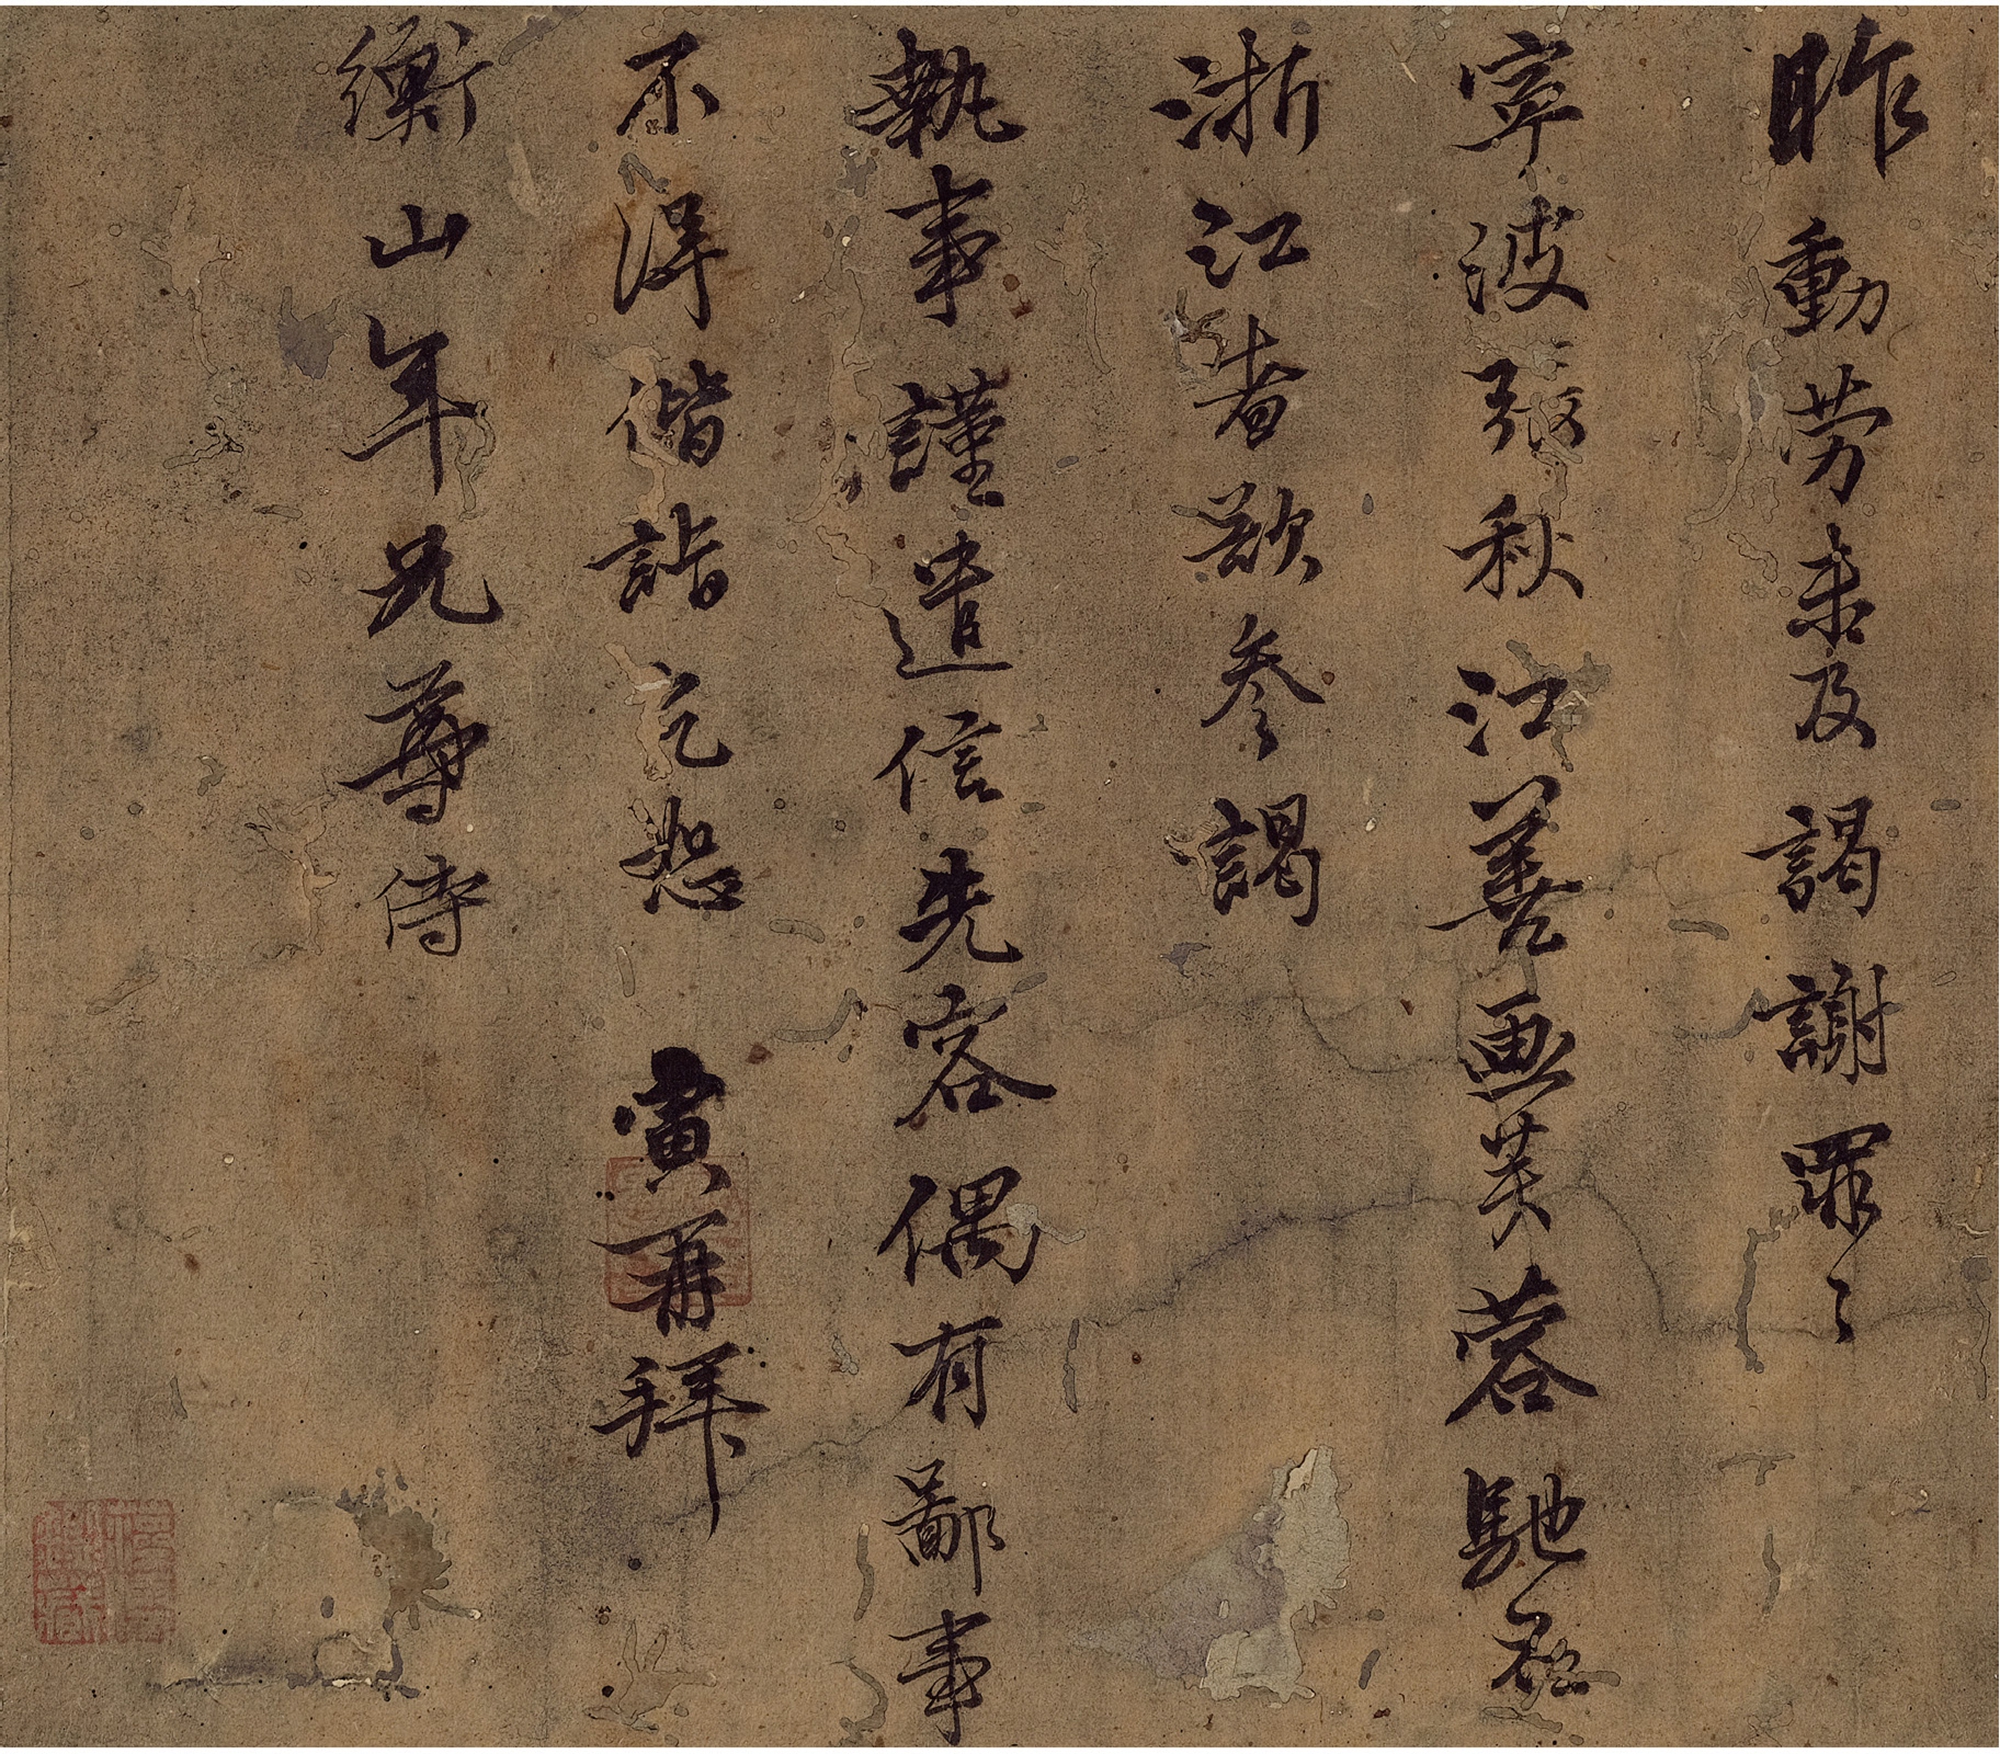 昨動劳未及謁謝罪〻
寧波張秋江善画芙蓉馳
浙江者欲参謁
執事謹遣信先容偶有鄙事
不得偕詣乞恕 寅再拜
衡山年兄尊侍